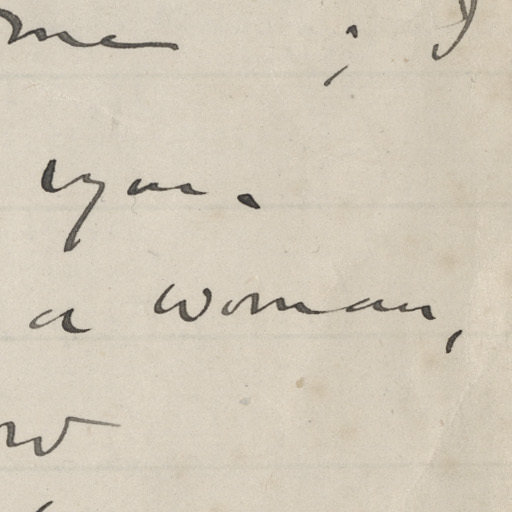 me ; I
you.
a woman,